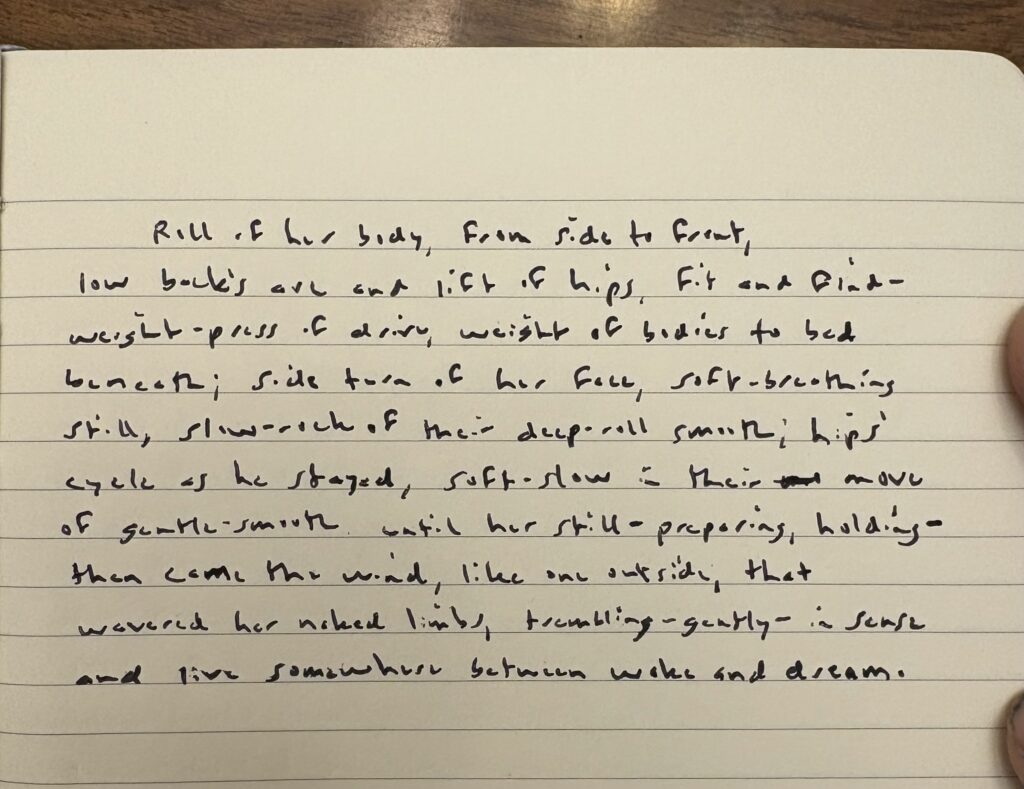 Roll of her body, from side to front,
low back's arc and lift of hips, fit and find-
weight-press of drive, weight of bodies to bed
beneath; side turn of her face, soft-breathing
still, slow-rock of their deep-roll smooth; hips'
cycle as he stayed, soft-slow in their move
of gentle-smooth until her still-preparing, holding-
then came the wind, like one outside, that
wavered her naked limbs, trembling-gently- in sense
and live somewhere between wake and dream.